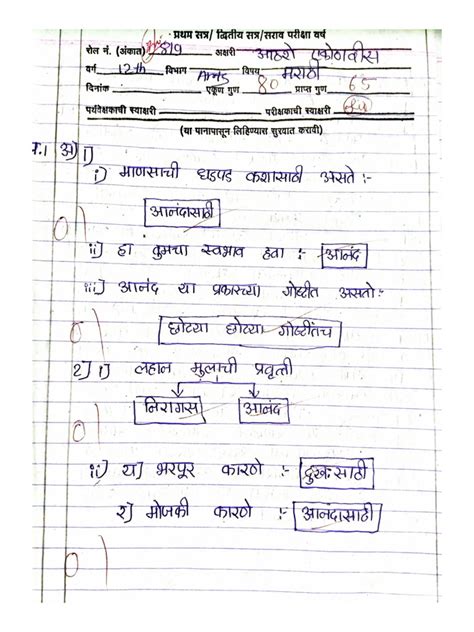 प्रथम सत्र/ द्वितीय सत्र/सराव परीक्षा वर्ष
रोल नं. (अंकात) 819 अक्षरी आठशे एकोणावीस
वर्ग 12th विभाग Arts विषय मराठी
दिनांक एकूण गुण 80 प्राप्त गुण 65
पर्यवेक्षकाची स्वाक्षरी परीक्षकाची स्वाक्षरी
(या पानापासून लिहिण्यास सुरवात करावी)
प्र.1 अ) 1]
i) माणसाची धडपड कशासाठी असते :-
आनंदासाठी
ii) हा तुमचा स्वभाव हवा :- आनंद
iii) आनंद या प्रकारच्या गोष्टीत असतो:-
छोट्या छोट्या गोष्टींतच
2] i) लहान मुलाची प्रवृत्ती
निरागस आनंद
ii) य] भरपूर कारणे :- दुःखासाठी
२] मोजकी कारणे :- आनंदासाठी